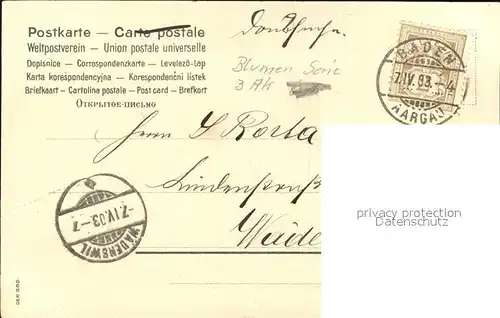 Postkarte — Carte postale
Weltpostverein – Union postale universelle
Dopisnice – Correspondenzkarte – Levelező-Lap
Karta korespondencyjna – Korespondenční lístek
Briefkaart – Cartolina postale – Post card – Brefkort
Открытое-письмо
Drucksache.
Blumen Serie
3 Ak
BADEN
7.IV.03. 4
AARGAU
Herrn
Lindenstraß
Wäde
WÄDENSWIL
-7.IV.03.-7
privacy protection
Datenschutz